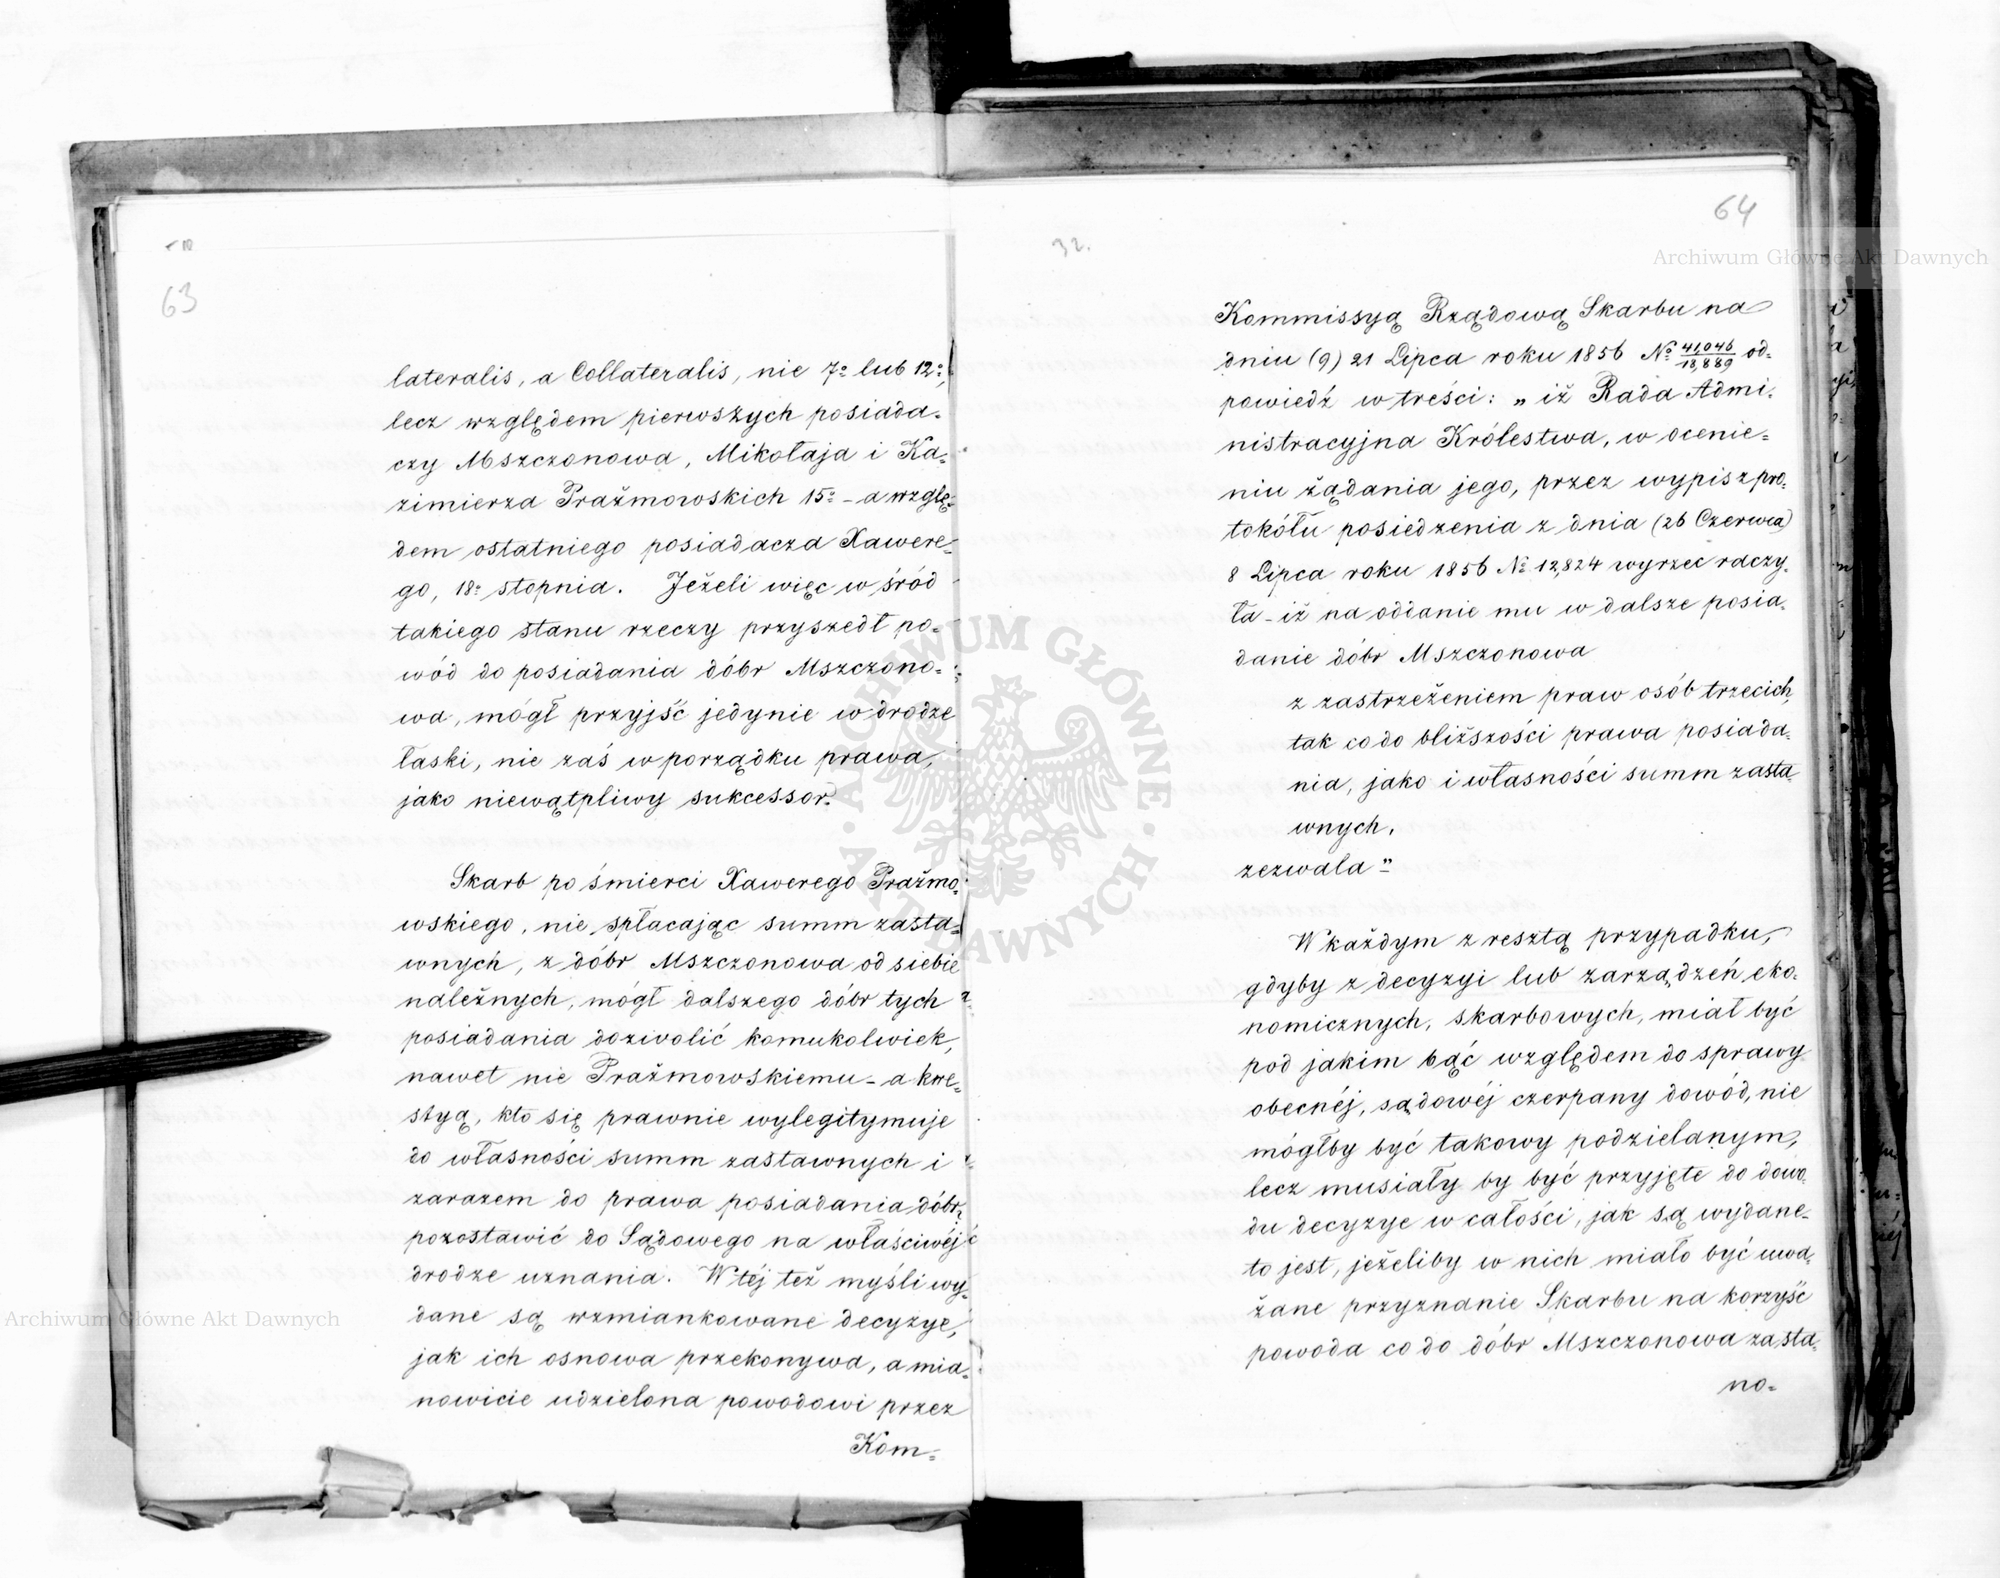 63
lateralis, a Collateralis, nie 7º lub 12º,
lecz względem pierwszych posiada=
czy Mszczonowa, Mikołaja i Ka=
zimierza Prażmowskich 15º – a wzglę=
dem ostatniego posiadacza Xawere=
go, 18º stopnia. Jeżeli więc w śród
takiego stanu rzeczy przyszedł po=
wód do posiadania dóbr Mszczono=
wa, mógł przyjść jedynie w drodze
łaski, nie zaś w porządku prawa,
jako niewątpliwy sukcessor.
Skarb po śmierci Xawerego Prażmo=
wskiego, nie spłacając summ zasta=
wnych, z dóbr Mszczonowa od siebie
należnych, mógł dalszego dóbr tych
posiadania dozwolić komukolwiek,
nawet nie Prażmowskiemu – a kwe=
styą, kto się prawnie wylegitymuje
do własności summ zastawnych i
zarazem do prawa posiadania dóbr,
pozostawić do Sądowego na właściwéj
drodze uznania. W téj też myśli wy=
dane są wzmiankowane decyzye,
jak ich osnowa przekonywa, a mia=
nowicie udzielona powodowi przez
Kom=
32.
64
Kommissyą Rządową Skarbu na
dniu (9) 21 Lipca roku 1856 Nº 41,046/18,889 od=
powiedź w treści: „ iż Rada Admi=
nistracyjna Królestwa, w ocenie=
niu żądania jego, przez wypis z pro=
tokółu posiedzenia z dnia (26 Czerwca)
8 Lipca roku 1856 Nº 12,824 wyrzec raczy=
ła – iż na oddanie mu w dalsze posia=
danie dóbr Mszczonowa
z zastrzeżeniem praw osób trzecich,
tak co do bliższości prawa posiada=
nia, jako i własności summ zasta
wnych.
zezwala"
W każdym z resztą przypadku,
gdyby z decyzyi lub zarządzeń eko=
nomicznych, skarbowych, miał być
pod jakim bąć względem do sprawy
obecnéj, sądowéj czerpany dowód, nie
mógłby być takowy podzielanym,
lecz musiały by być przyjęte do dowo=
du decyzye w całości, jak są wydane –
to jest, jeżeliby w nich miało być uwa=
żane przyznanie Skarbu na korzyść
powoda co do dóbr Mszczonowa zasta=
no=
Archiwum Główne Akt Dawnych
Archiwum Główne Akt Dawnych
ARCHIWUM GŁÓWNE • AKT DAWNYCH •